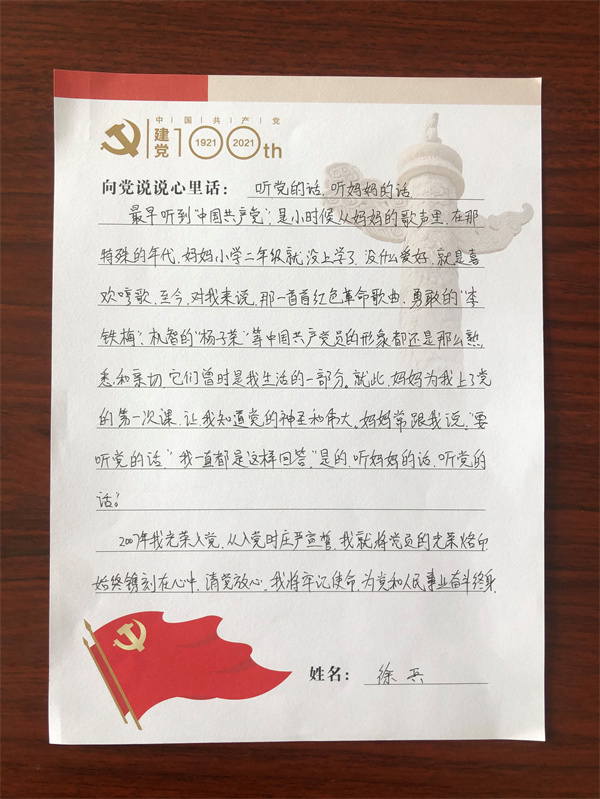 中国共产党
建党 1921 2021 100th
向党说说心里话: 听党的话,听妈妈的话
最早听到“中国共产党”,是小时候从妈妈的歌声里,在那
特殊的年代,妈妈小学二年级就没上学了,没什么爱好,就是喜
欢哼歌,至今,对我来说,那一首首红色革命歌曲,勇敢的“李
铁梅”、机智的“杨子荣”等中国共产党员的形象都还是那么熟
悉和亲切,它们曾时是我生活的一部分。就此,妈妈为我上了党
的第一次课,让我知道党的神圣和伟大。妈妈常跟我说,“要
听党的话”我一直都是这样回答“是的,听妈妈的话,听党的
话”
2007年我光荣入党,从入党时庄严宣誓,我就将党员的光荣烙印
始终镌刻在心中,请党放心,我将牢记使命,为党和人民事业奋斗终身
姓名: 徐兵